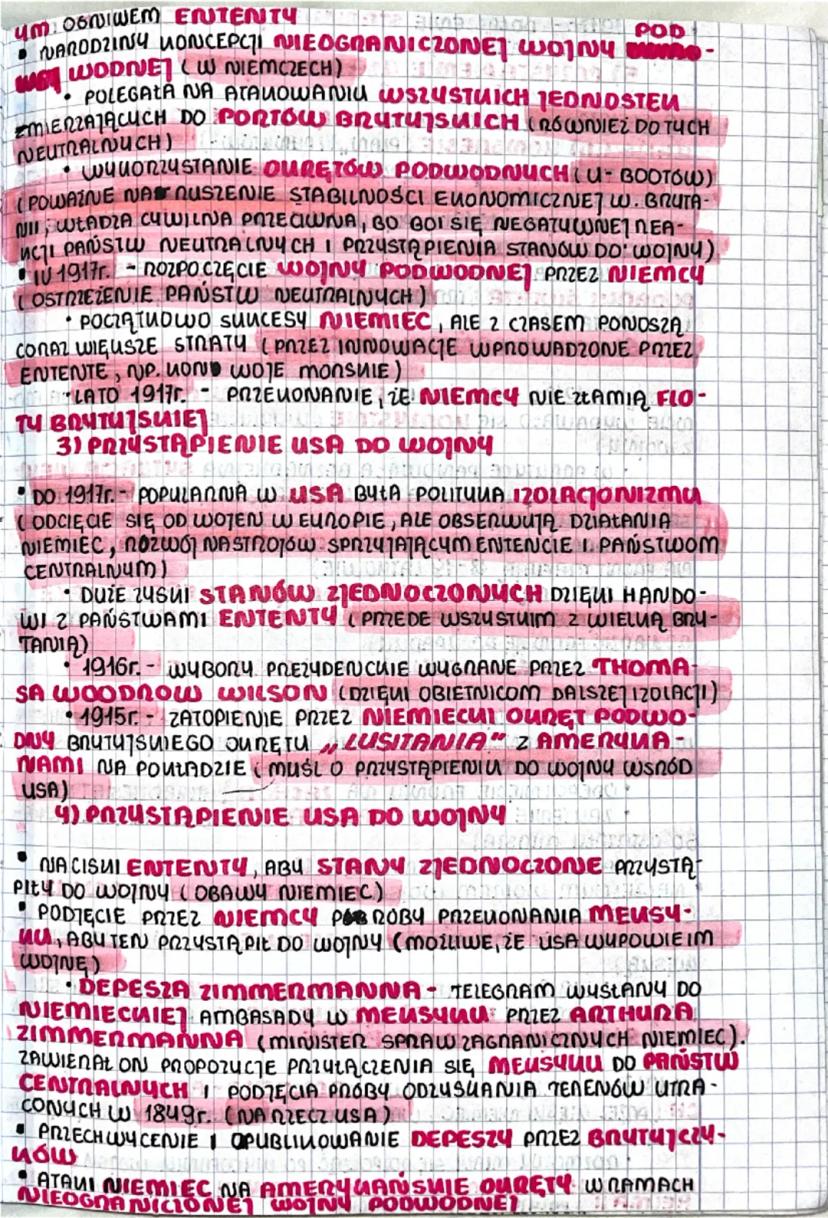 YM OGNIWEM ENTENTY
• NARODZINY KONCEPCJI NIEOGRANICZONEJ WOJNY POD-
WODNEJ (W NIEMCZECH)
• POLEGAŁA NA ATAKOWANIU WSZYSTKICH JEDNOSTEK
ZMIERZAJĄCYCH DO PORTÓW BRYTYJSKICH (RÓWNIEŻ DO TYCH
NEUTRALNYCH)
• WYKORZYSTANIE OKRĘTÓW PODWODNYCH (U-BOOTÓW)
(POWAŻNE NARUSZENIE STABILNOŚCI EKONOMICZNEJ W. BRYTA-
NII, WŁADZA CYWILNA PRZECIWNA, BO BOI SIĘ NEGATYWNEJ REA-
KCJI PAŃSTW NEUTRALNYCH I PRZYSTĄPIENIA STANÓW DO WOJNY)
• IV 1917r. - ROZPOCZĘCIE WOJNY PODWODNEJ PRZEZ NIEMCY
(OSTRZEŻENIE PAŃSTW NEUTRALNYCH)
• POCZĄTKOWO SUKCESY NIEMIEC, ALE Z CZASEM PONOSZĄ
CORAZ WIĘKSZE STRATY (PRZEZ INNOWACJE WPROWADZONE PRZEZ
ENTENTE, NP. KONWOJE MORSKIE)
• LATO 1917r. - PRZEKONANIE, ŻE NIEMCY NIE ZŁAMIĄ FLO-
TY BRYTYJSKIEJ
3) PRZYSTĄPIENIE USA DO WOJNY
• DO 1917r. - POPULARNA W USA BYŁA POLITYKA IZOLACJONIZMU
(ODCIĘCIE SIĘ OD WOJEN W EUROPIE, ALE OBSERWUJĄ DZIAŁANIA
NIEMIEC, ROZWÓJ NASTROJÓW SPRZYJAJĄCYM ENTENCIE I PAŃSTWOM
CENTRALNYM)
• DUŻE ZYSKI STANÓW ZJEDNOCZONYCH DZIĘKI HANDO-
WI Z PAŃSTWAMI ENTENTY (PRZEDE WSZYSTKIM Z WIELKĄ BRY-
TANIĄ)
• 1916r. - WYBORY PREZYDENCKIE WYGRANE PRZEZ THOMA-
SA WOODROW WILSON (DZIĘKI OBIETNICOM DALSZEJ IZOLACJI)
• 1915r. - ZATOPIENIE PRZEZ NIEMIECKI OKRĘT PODWO-
DNY BRYTYJSKIEGO OKRĘTU „LUSITANIA" Z AMERYKA-
NAMI NA POKŁADZIE (MYŚL O PRZYSTĄPIENIU DO WOJNY WŚRÓD
USA)
4) PRZYSTĄPIENIE USA DO WOJNY
• NACISKI ENTENTY, ABY STANY ZJEDNOCZONE PRZYSTĄ-
PIŁY DO WOJNY (OBAWY NIEMIEC)
• PODJĘCIE PRZEZ NIEMCY PRÓBY PRZEKONANIA MEKSY-
KU, ABY TEN PRZYSTĄPIŁ DO WOJNY (MOŻLIWE, ŻE USA WYPOWIE IM
WOJNĘ)
• DEPESZA ZIMMERMANNA - TELEGRAM WYSŁANY DO
NIEMIECKIEJ AMBASADY W MEKSYKU PRZEZ ARTHURA
ZIMMERMANNA (MINISTER SPRAW ZAGRANICZNYCH NIEMIEC).
ZAWIERAŁ ON PROPOZYCJE PRZYŁĄCZENIA SIĘ MEKSYKU DO PAŃSTW
CENTRALNYCH I PODJĘCIA PRÓBY ODZYSKANIA TERENÓW UTRA-
CONYCH W 1849r. (NA RZECZ USA)
• PRZECHWYCENIE I OPUBLIKOWANIE DEPESZY PRZEZ BRYTYJCZY-
KÓW
• ATAKI NIEMIEC NA AMERYKAŃSKIE OKRĘTY W RAMACH
NIEOGRANICZONEJ WOJNY PODWODNEJ